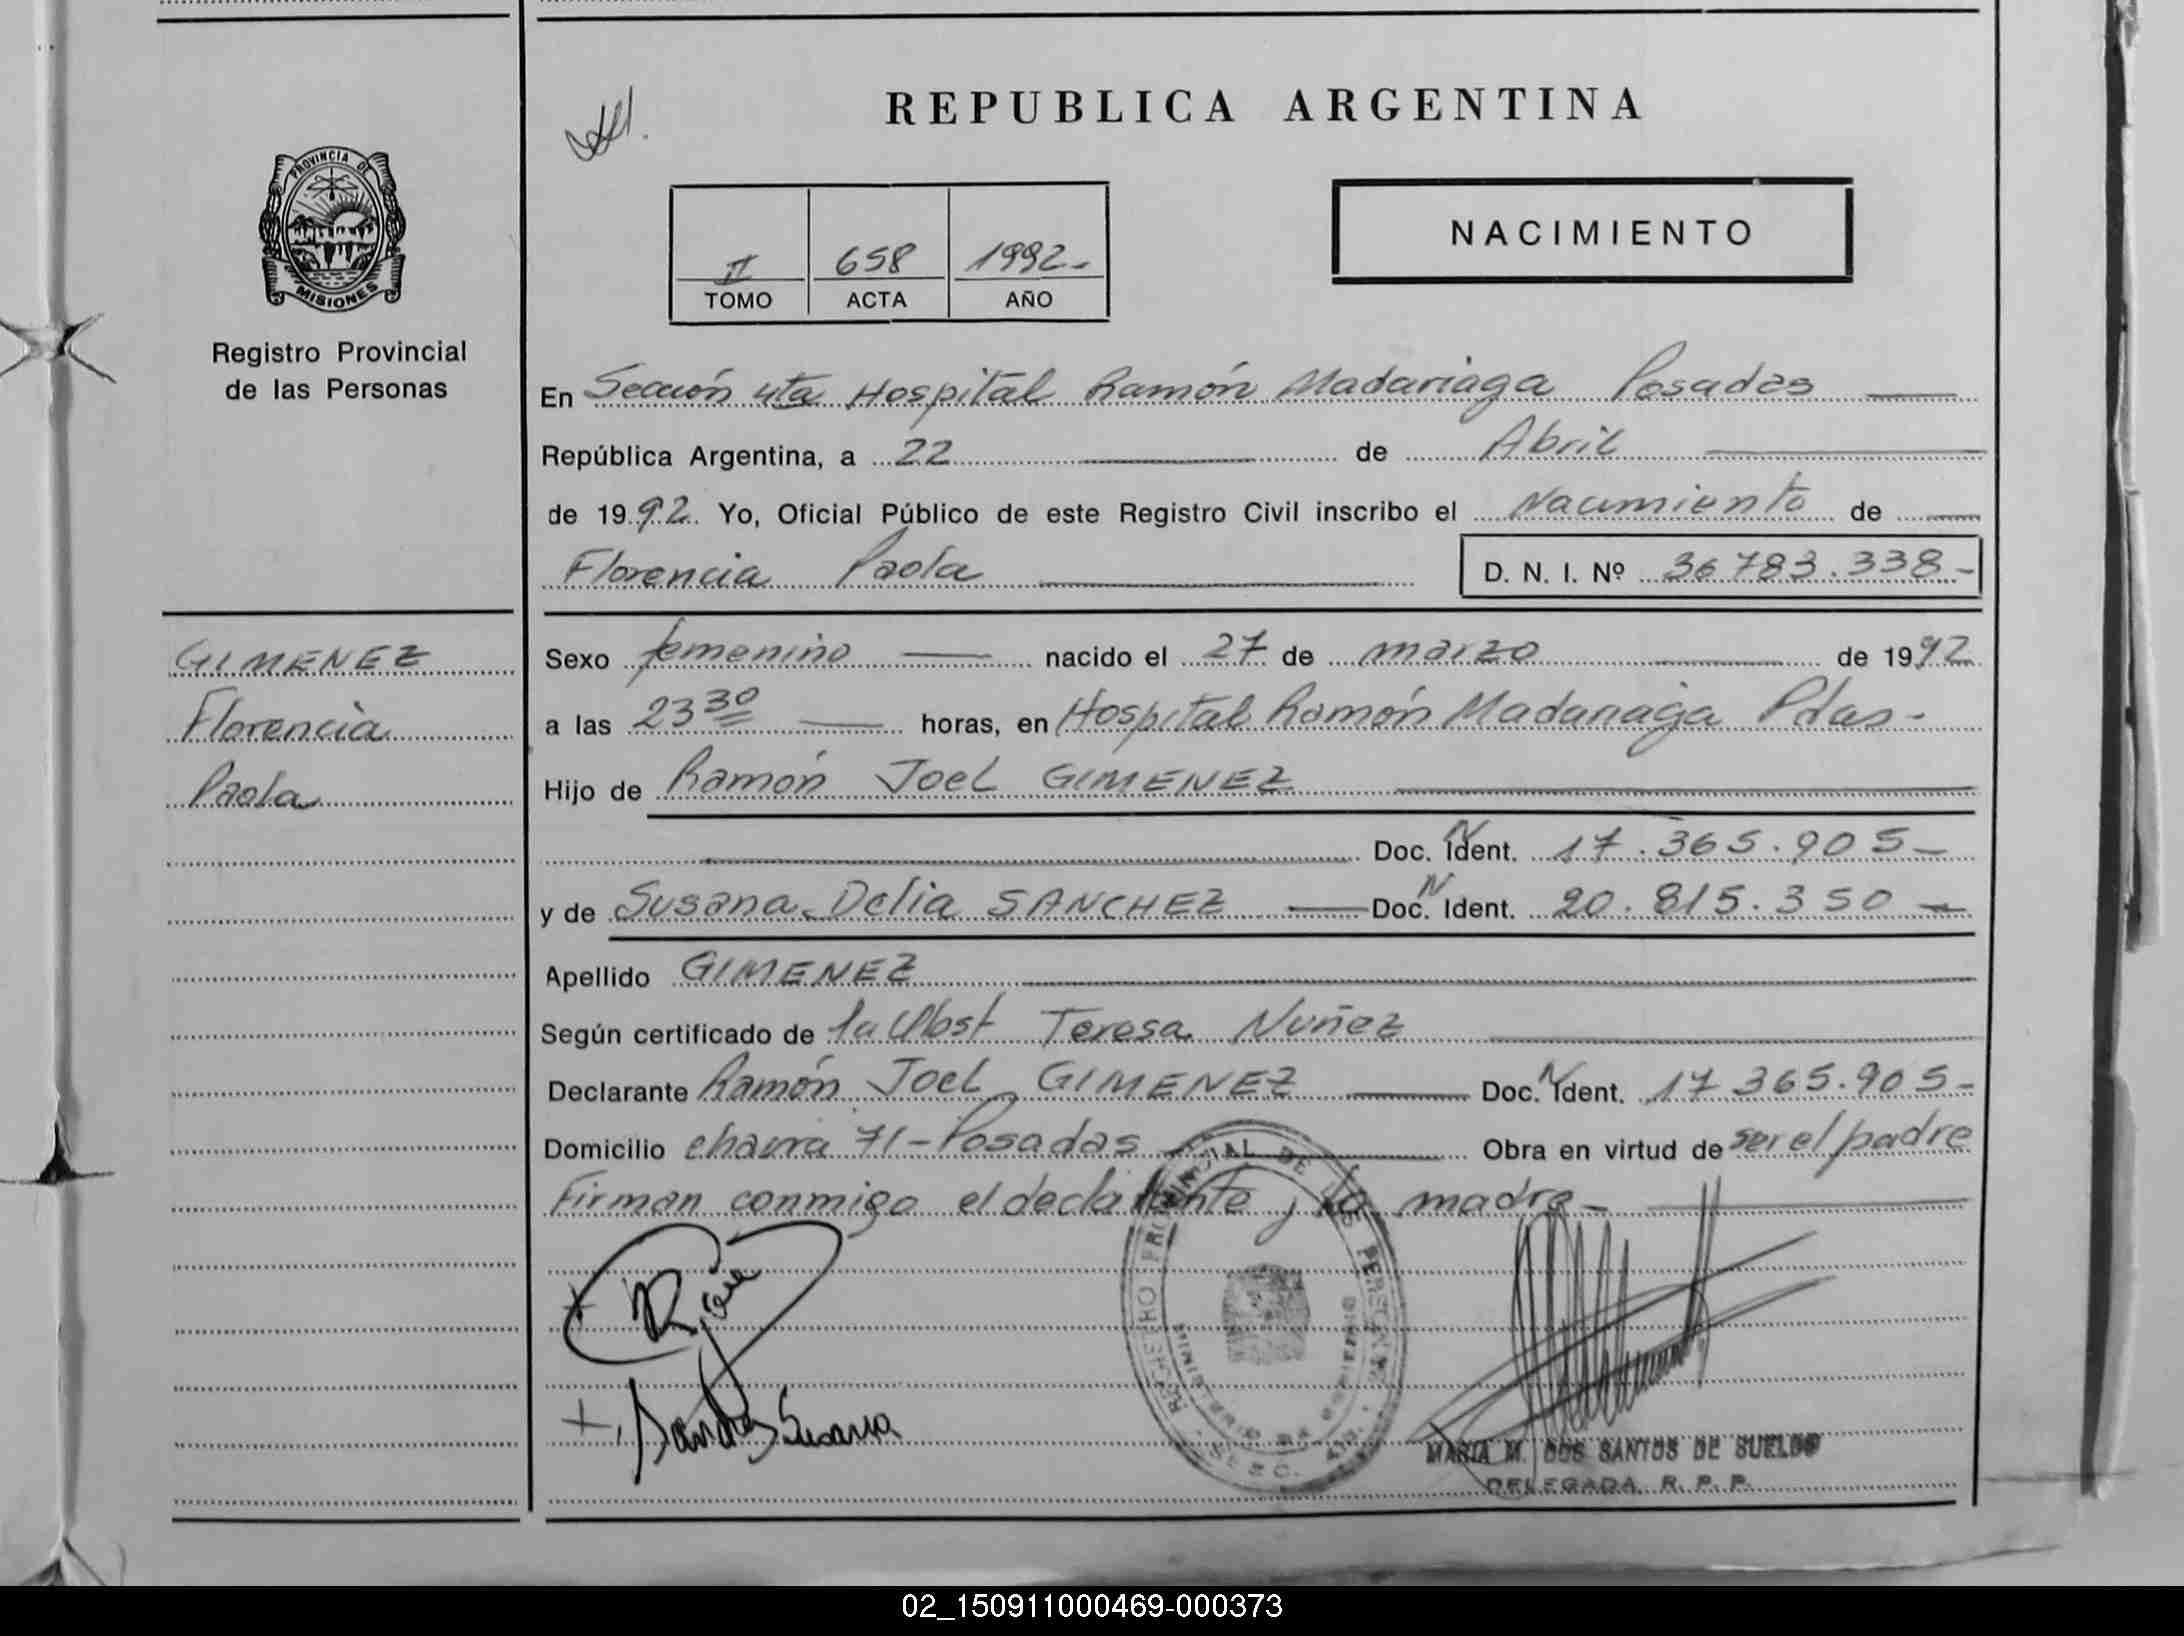 REPUBLICA ARGENTINA
PROVINCIA DE
MISIONES
Registro Provincial
de las Personas
II 658 1992-
TOMO ACTA AÑO
NACIMIENTO
En Sección 4ta Hospital Ramón Madariaga Posadas
República Argentina, a 22 de Abril
de 1992. Yo, Oficial Público de este Registro Civil inscribo el Nacimiento de
Florencia Paola D. N. I. Nº 36783.338-
GIMENEZ
Florencia
Paola
Sexo femenino nacido el 27 de marzo de 1992
a las 23 30 horas, en Hospital Ramón Madariaga Pdas-
Hijo de Ramón Joel GIMENEZ
Doc. N Ident. 17.365.905-
y de Susana Delia SANCHEZ Doc. N Ident. 20.815.350-
Apellido GIMENEZ
Según certificado de la Obst Teresa Nuñez
Declarante Ramón Joel GIMENEZ Doc. N Ident. 17 365.905-
Domicilio chacra 71-Posadas Obra en virtud de ser el padre
Firman conmigo el declarante y la madre-
REGISTRO PROVINCIAL DE LAS PERSONAS
Sanchez Susana
MARIA M. DOS SANTOS DE SUELDO
DELEGADA R. P. P.
02_150911000469-000373